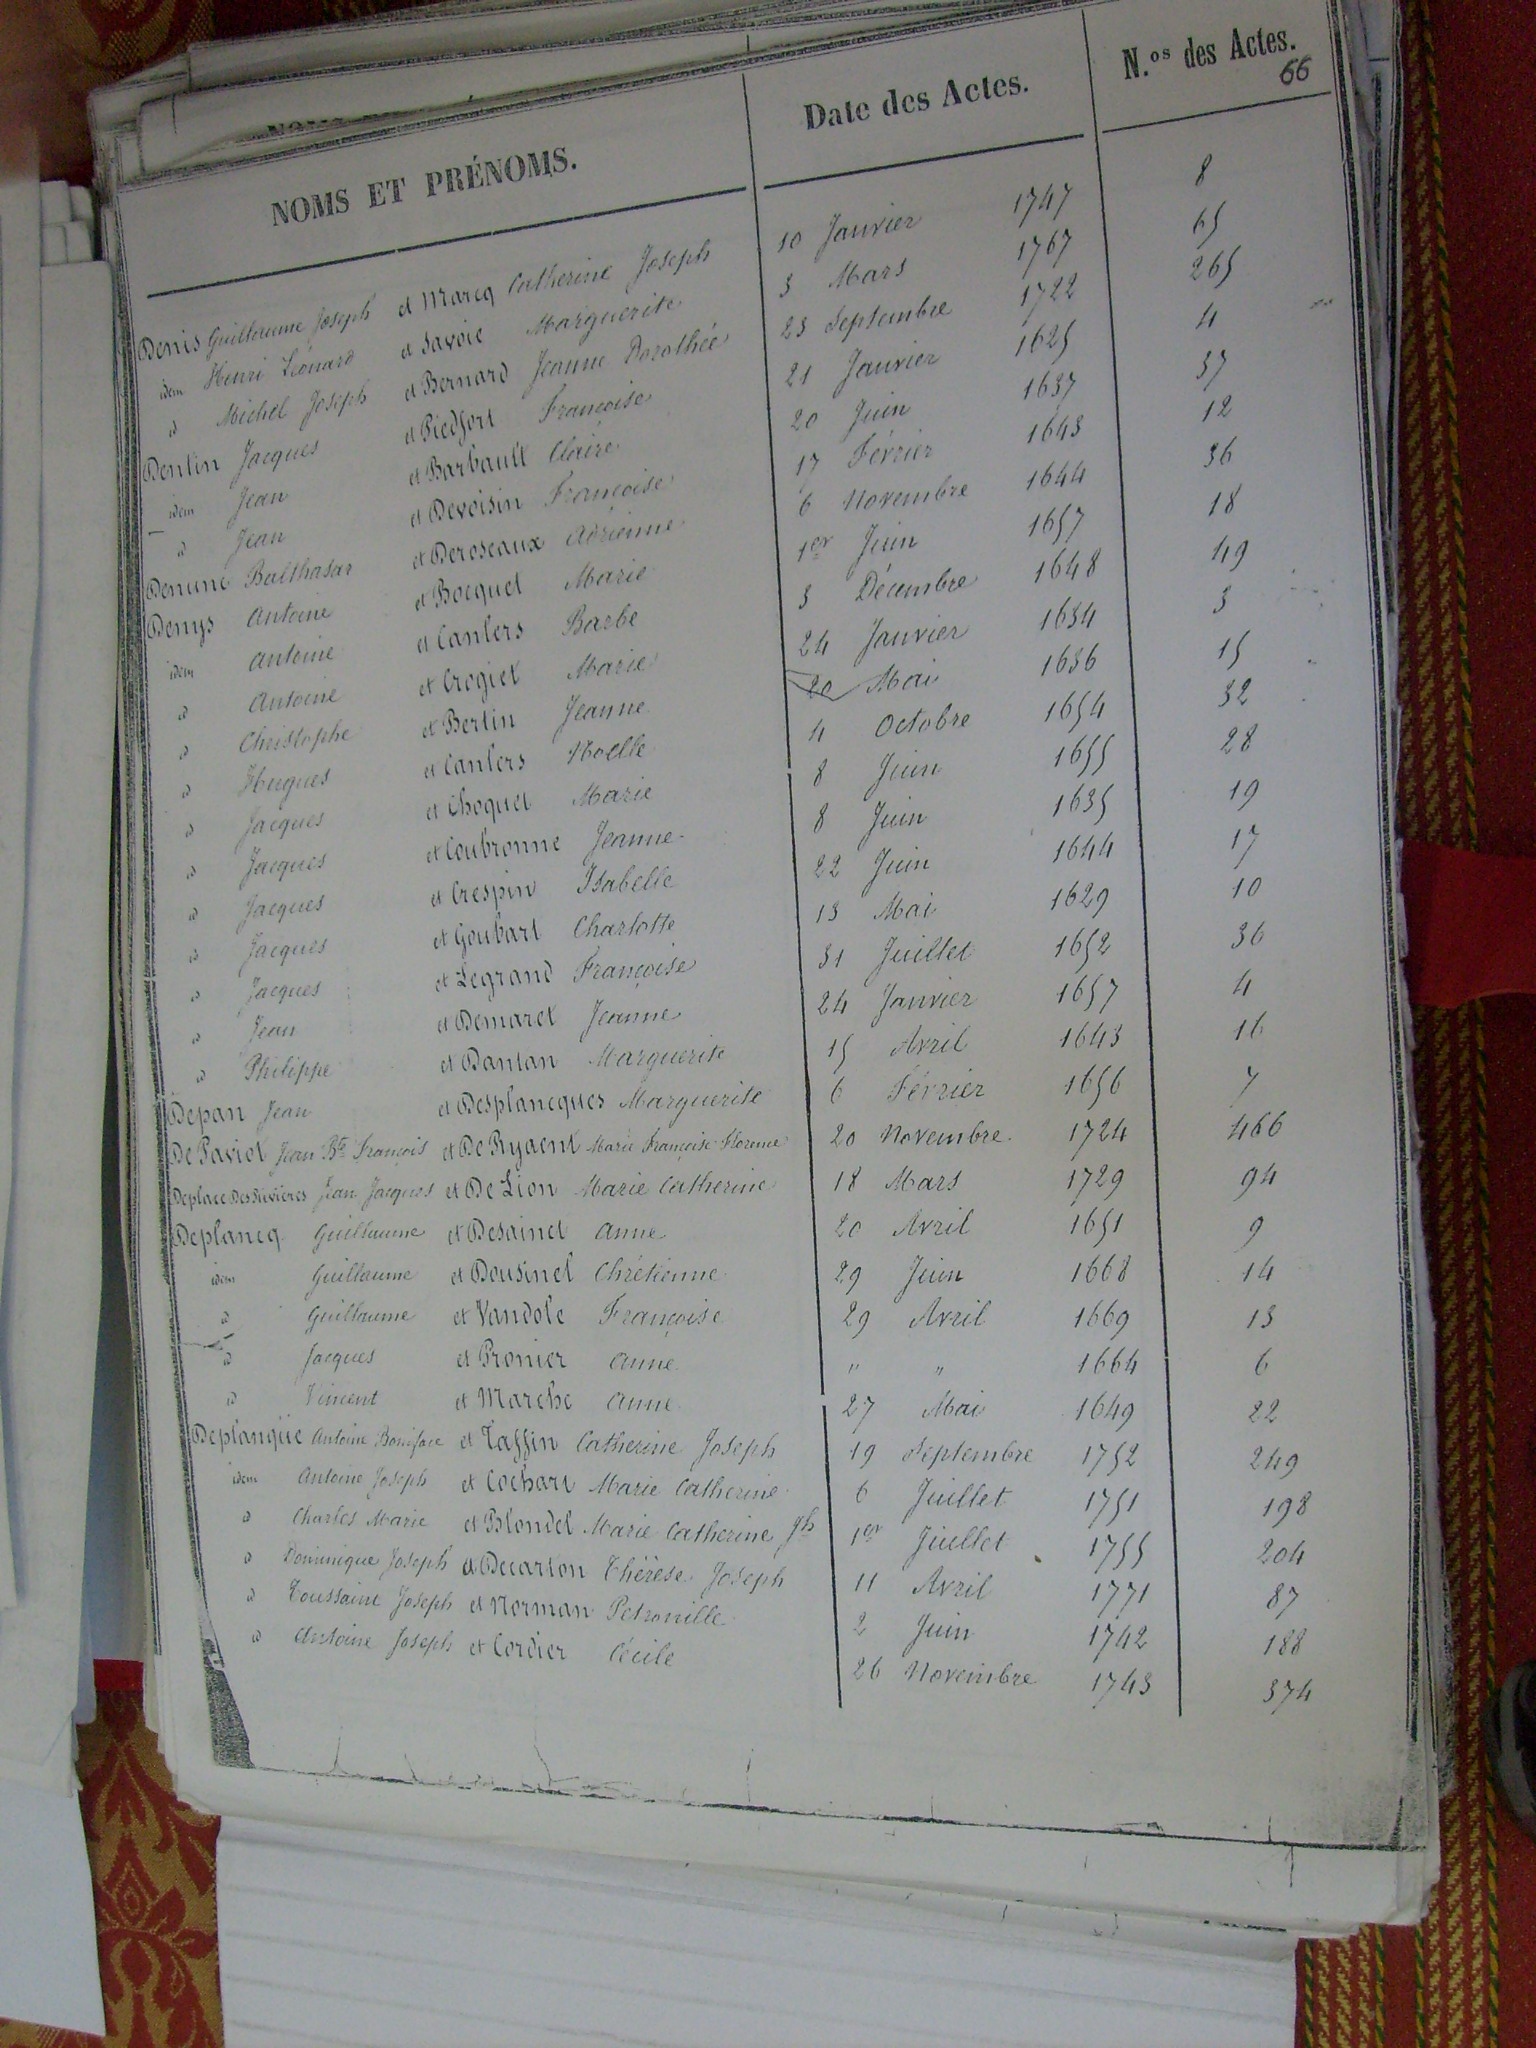 NOMS ET PRÉNOMS. Date des Actes. N.os des Actes.
66
Denis Guillaume Joseph et Marcq Catherine Joseph 10 Janvier 1747 8
idem Henri Léonard et Savoie Marguerite 3 Mars 1767 65
id Michel Joseph et Bernard Jeanne Dorothée 23 Septembre 1722 265
Denlin Jacques et Piedfort Françoise 21 Janvier 1625 4
idem Jean et Barbault Claire 20 Juin 1637 37
id Jean et Devoisin Françoise 17 Février 1643 12
Denunc Balthasar et Deroseaux Adrienne 6 Novembre 1644 36
Denys Antoine et Bocquet Marie 1er Juin 1657 18
idem Antoine et Canlers Barbe 3 Décembre 1648 49
id Antoine et Crogiet Marie 24 Janvier 1634 3
id Christophe et Bertin Jeanne 20 Mai 1636 15
id Hugues et Canlers Noelle 4 Octobre 1654 32
id Jacques et Choquet Marie 8 Juin 1655 28
id Jacques et Coubronne Jeanne 8 Juin 1635 19
id Jacques et Crespin Isabelle 22 Juin 1644 17
id Jacques et Goubart Charlotte 13 Mai 1629 10
id Jacques et Legrand Françoise 31 Juillet 1652 36
id Jean et Demaret Jeanne 24 Janvier 1657 4
id Philippe et Dantan Marguerite 15 Avril 1643 16
Depan Jean et Desplancques Marguerite 6 Février 1656 7
De Paviot Jean Bte François et De Ryaent Marie Françoise Florence 20 Novembre 1724 466
Deplace Desrivières Jean Jacques et De Lion Marie Catherine 18 Mars 1729 94
Deplancq Guillaume et Desainct Anne 20 Avril 1651 9
idem Guillaume et Dousinel Chrétienne 29 Juin 1668 14
id Guillaume et Vandole Françoise 29 Avril 1669 13
id Jacques et Pronier Anne " " 1664 6
id Vincent et Marche Anne 27 Mai 1649 22
Deplanque Antoine Boniface et Taffin Catherine Joseph 19 Septembre 1752 249
idem Antoine Joseph et Cochart Marie Catherine 6 Juillet 1751 198
id Charles Marie et Blondel Marie Catherine Jh 1er Juillet 1755 204
id Dominique Joseph et Decarton Thérèse Joseph 11 Avril 1771 87
id Toussaint Joseph et Norman Petronille 2 Juin 1742 188
id Antoine Joseph et Cordier Cécile 26 Novembre 1743 374